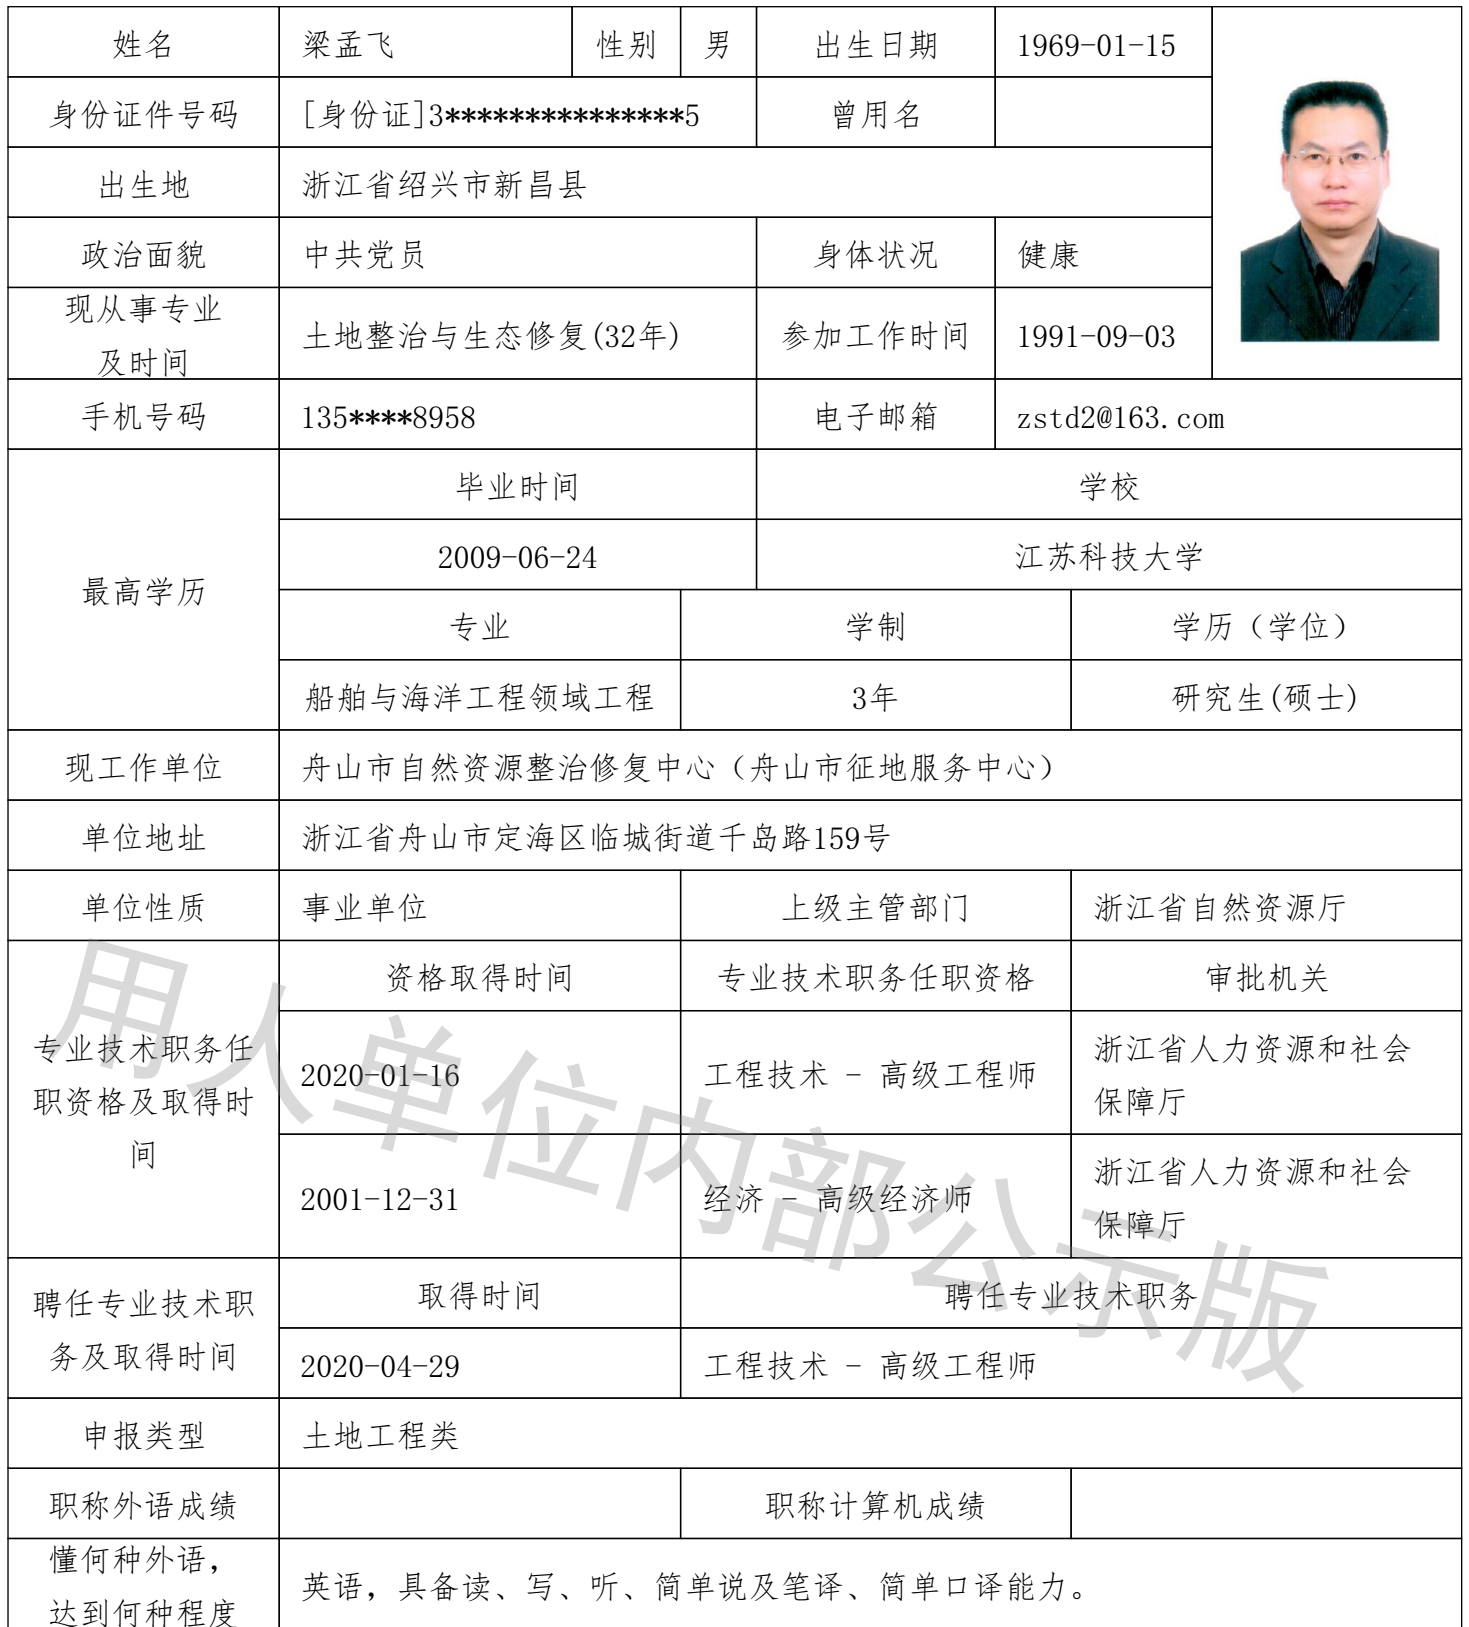 姓名 梁孟飞 性别 男 出生日期 1969-01-15
身份证件号码 [身份证]3***************5 曾用名
出生地 浙江省绍兴市新昌县
政治面貌 中共党员 身体状况 健康
现从事专业
及时间 土地整治与生态修复(32年) 参加工作时间 1991-09-03
手机号码 135****8958 电子邮箱 zstd2@163.com
最高学历
毕业时间 学校
2009-06-24 江苏科技大学
专业 学制 学历（学位）
船舶与海洋工程领域工程 3年 研究生(硕士)
现工作单位 舟山市自然资源整治修复中心（舟山市征地服务中心）
单位地址 浙江省舟山市定海区临城街道千岛路159号
单位性质 事业单位 上级主管部门 浙江省自然资源厅
专业技术职务任
职资格及取得时
间
资格取得时间 专业技术职务任职资格 审批机关
2020-01-16 工程技术 - 高级工程师 浙江省人力资源和社会
保障厅
2001-12-31 经济 - 高级经济师 浙江省人力资源和社会
保障厅
聘任专业技术职
务及取得时间
取得时间 聘任专业技术职务
2020-04-29 工程技术 - 高级工程师
申报类型 土地工程类
职称外语成绩 职称计算机成绩
懂何种外语，
达到何种程度 英语，具备读、写、听、简单说及笔译、简单口译能力。
用人单位内部公示版